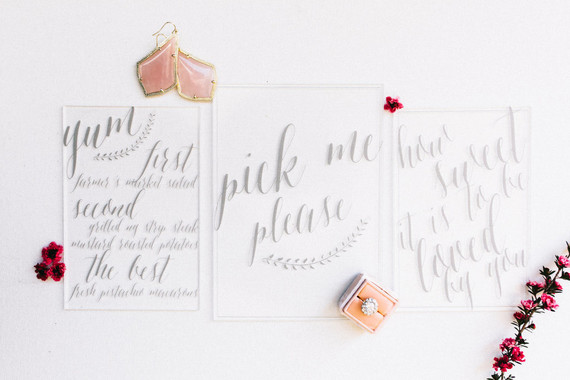 yum
first
farmer's market salad
second
grilled ny strip steak
mustard roasted potatoes
the best
fresh pistachio macarons
pick me
please
how sweet
it is to be
loved
by you